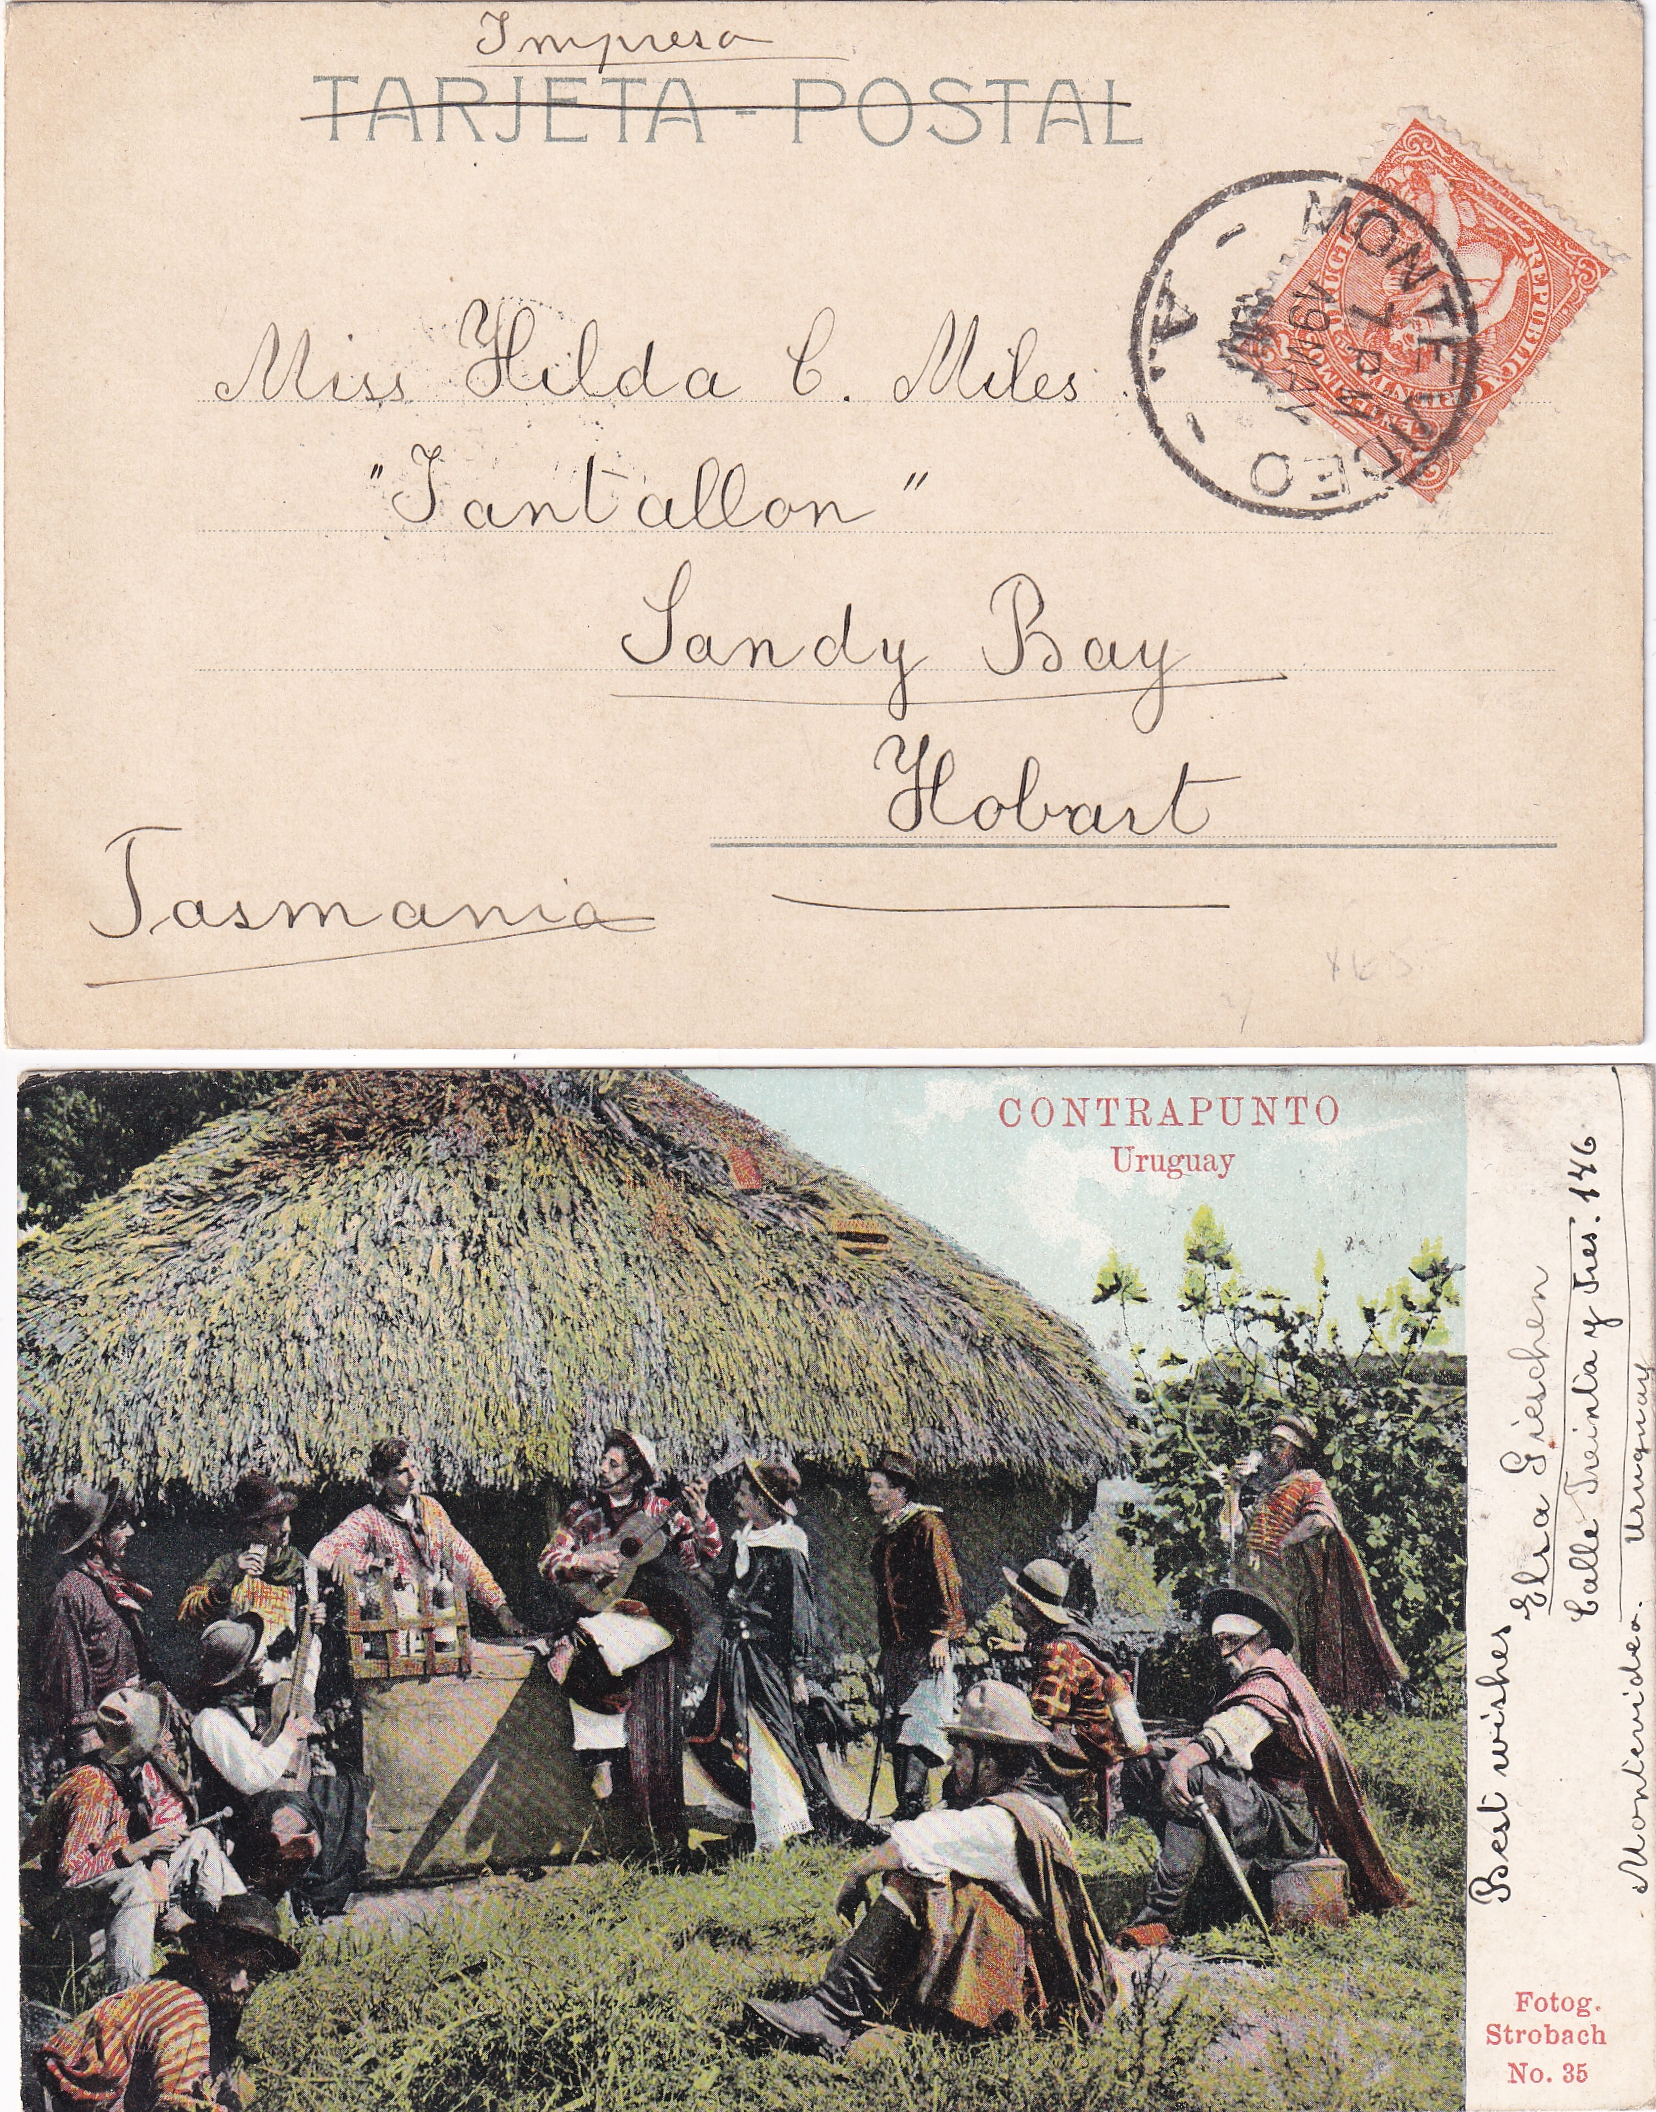 Impreso
TARJETA - POSTAL
Miss Hilda C. Miles
"Tantallon"
Sandy Bay
Hobart
Tasmania
MONTEVIDEO
7 P M
A.
CONTRAPUNTO
Uruguay
Best wishes
Elsa Gieschen
Calle Treinta y Tres. 146.
Montevideo. Uruguay
Fotog.
Strobach
No. 35